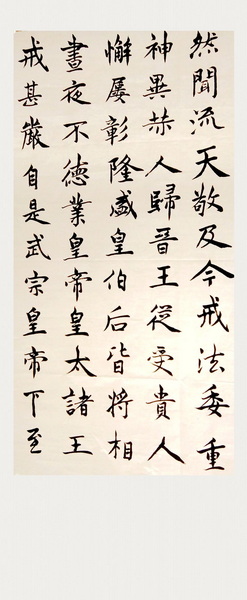 然聞流天敬及今戒法委重
神異赫人歸晉王從受貴人
懈屢彰隆盛皇伯后皆將相
晝夜不德業皇帝皇太諸王
戒甚嚴自是武宗皇帝下至